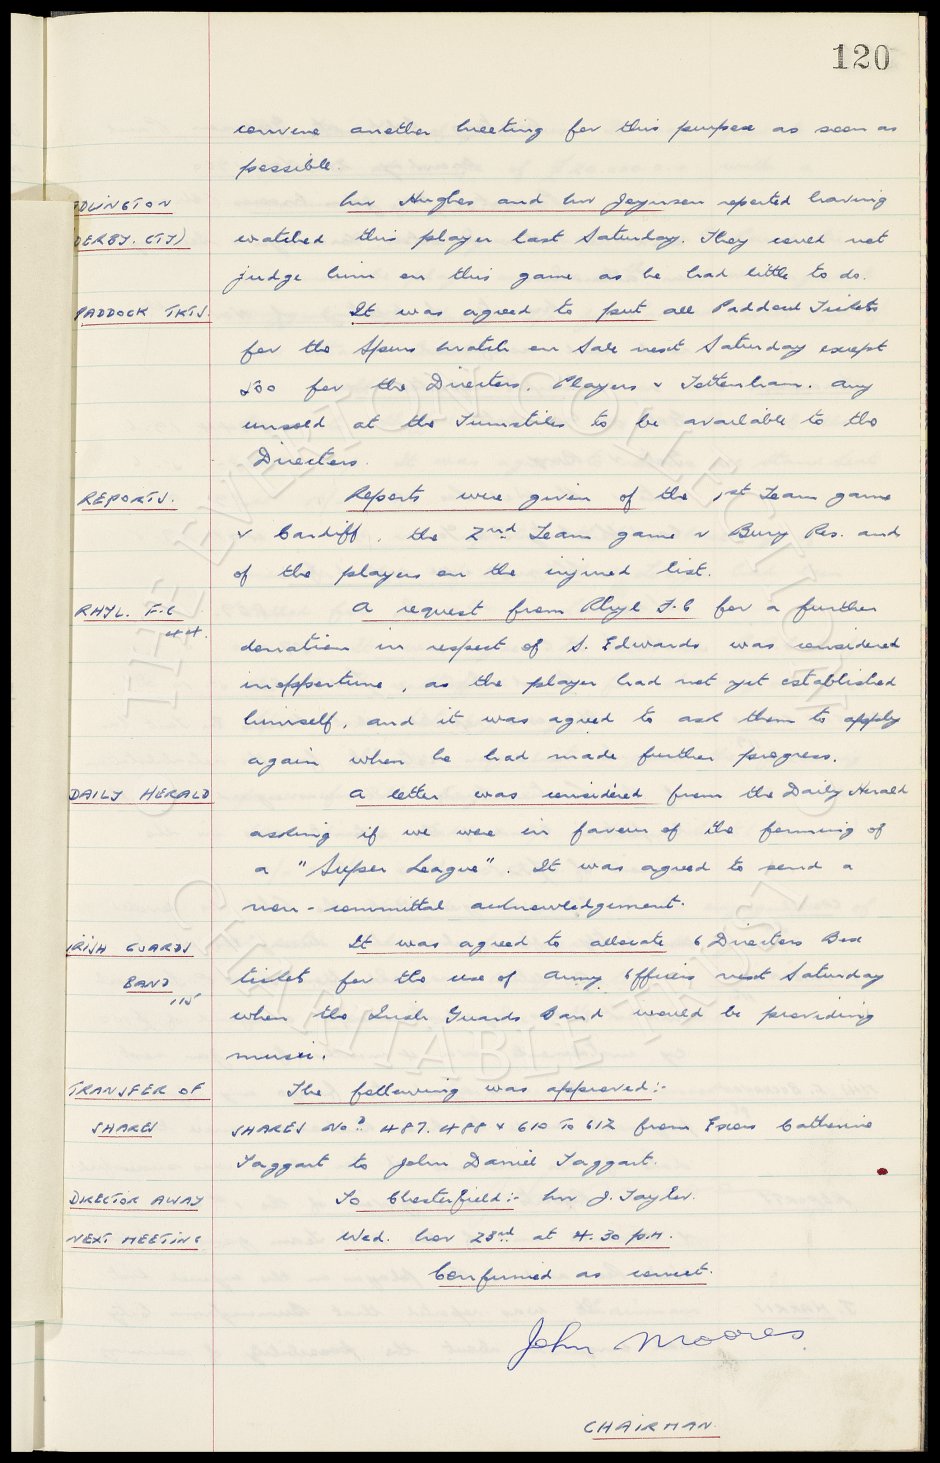 120
convene another meeting for this purpose as soon as
possible.
EDLINGTON Mr Hughes and Mr Joynson reported having
DERBY. CTY) watched this player last Saturday. They could not
judge him on this game as he had little to do.
PADDOCK TKTS. It was agreed to put all Paddock Tickets
for the Spurs match on Sale next Saturday except
500 for the Directors, Players & Tottenham. Any
unsold at the Turnstiles to be available to the
Directors.
REPORTS. Reports were given of the 1st Team game
v Cardiff, the 2nd Team game v Bury Res. and
of the players on the injured list.
RHYL. F.C A request from Rhyl F.C for a further
44.
donation in respect of S. Edwards was considered
inopportune, as the player had not yet established
himself, and it was agreed to ask them to apply
again when he had made further progress.
DAILY HERALD A letter was considered from the Daily Herald
asking if we were in favour of the forming of
a "Super League". It was agreed to send a
non-committal acknowledgement.
IRISH GUARDS It was agreed to allocate 6 Directors Box
BAND tickets for the use of Army Officers next Saturday
115
when the Irish Guards Band would be providing
music.
TRANSFER OF The following was approved:-
SHARES SHARES Nos 487. 488 & 610 TO 612 from Exors Catherine
Taggart to John Daniel Taggart.
DIRECTOR AWAY To Chesterfield:- Mr J. Taylor.
NEXT MEETING Wed. Nov 23rd at 4.30 p.m.
Confirmed as correct.
John Moores
CHAIRMAN.
THE EVERTON COLLECTION
CHARITABLE TRUST